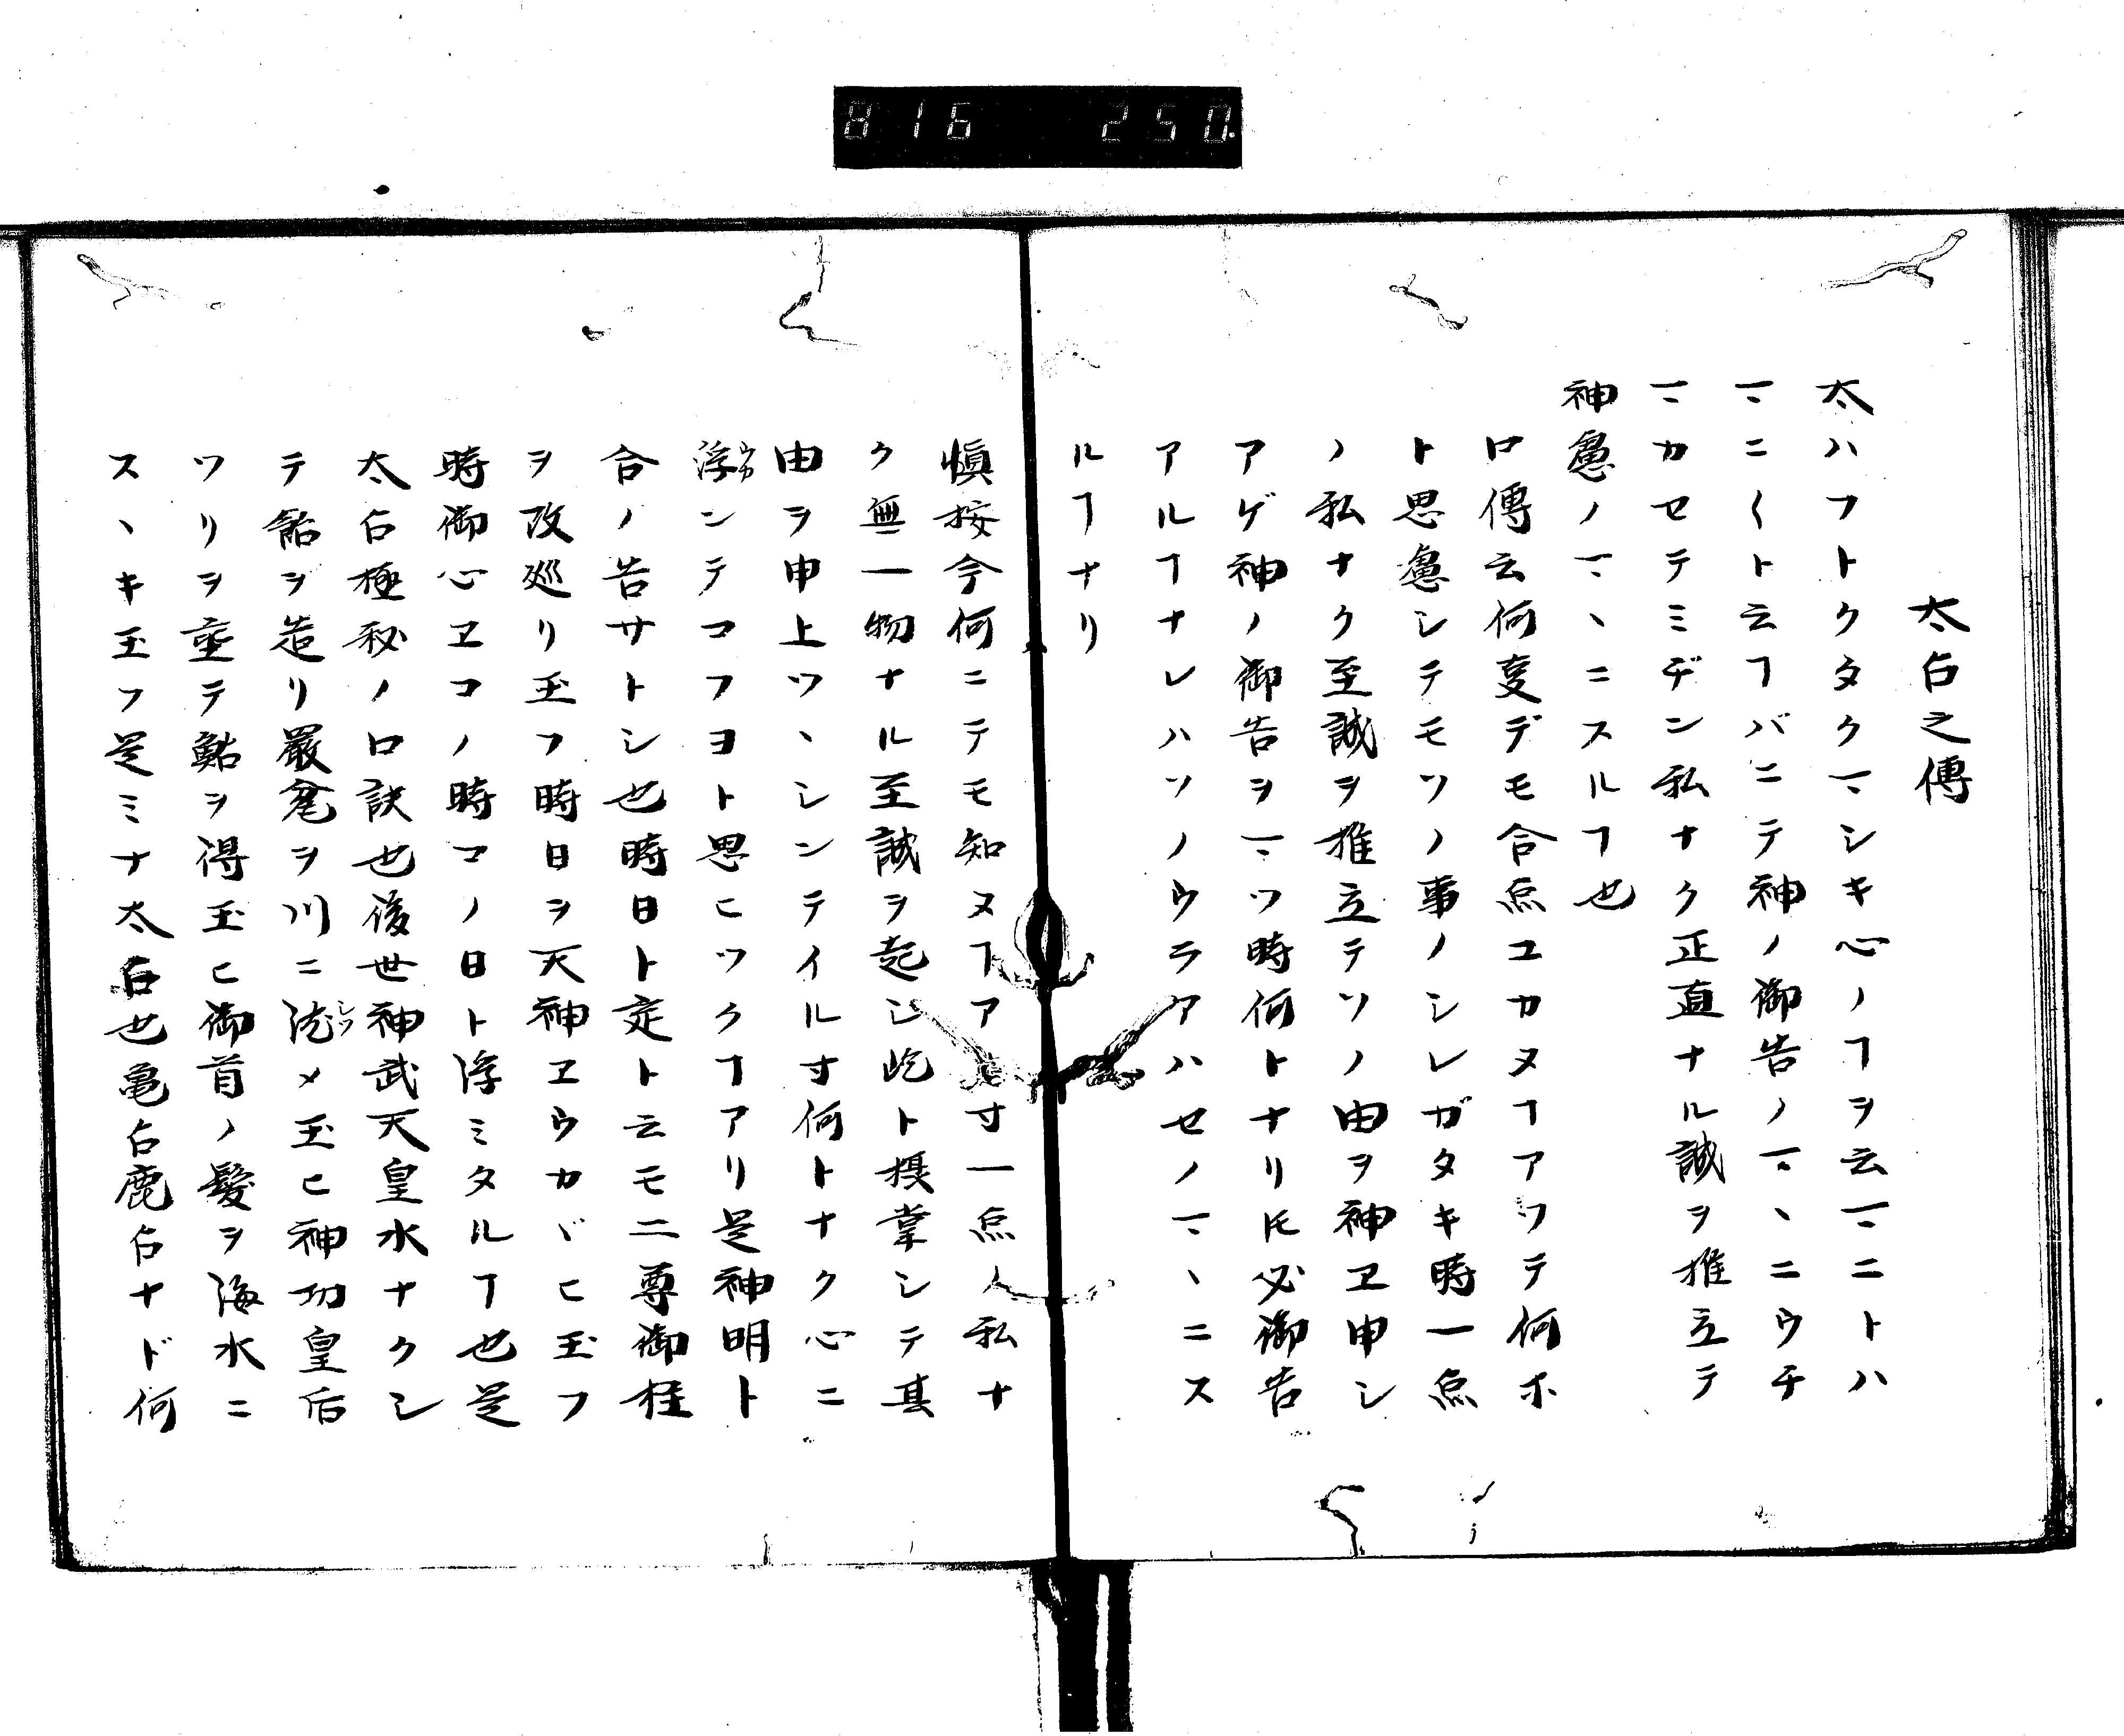 816 250.
太占之傳
太ハフトクタクマシキ心ノヿヲ云マニトハ
マニ〱ト云ヿバニテ神ノ御告ノマヽニウチ
マカセテミヂン私ナク正直ナル誠ヲ推立テ
神慮ノマヽニスルヿ也
口傳云何変デモ合点ユカヌヿアツテ何ホ
ト思慮シテモソノ事ノシレガタキ時一点
ノ私ナク至誠ヲ推立テソノ由ヲ神ヱ申シ
アゲ神ノ御告ヲマツ時何トナリ𪜈必御告
アルヿナレハソノウラアハセノマヽニス
ルヿナリ
慎按今何ニテモ知ヌヿアヒ寸一点ノ私ナ
ク無一物ナル至誠ヲ起シ屹ト摸掌シテ其
由ヲ申上ツヽシンテイル寸何トナク心ニ
浮ンテコフヨト思ヒツクヿアリ是神明ト
ウカ
合ノ告サトシ也時日ト定ト云モ二尊御柱
ヲ改巡リ玉フ時日ヲ天神ヱウカヾヒ玉フ
時御心ヱコノ時コノ日ト浮ミタルヿ也是
太占極秘ノ口訣也後世神武天皇水ナクシ
テ飴ヲ造リ嚴瓮ヲ川ニ沈メ玉ヒ神功皇后
シツ
ツリヲ垂テ鮎ヲ得玉ヒ御首ノ髪ヲ海水ニ
スヽキ玉フ是ミナ太占也亀占鹿占ナド何